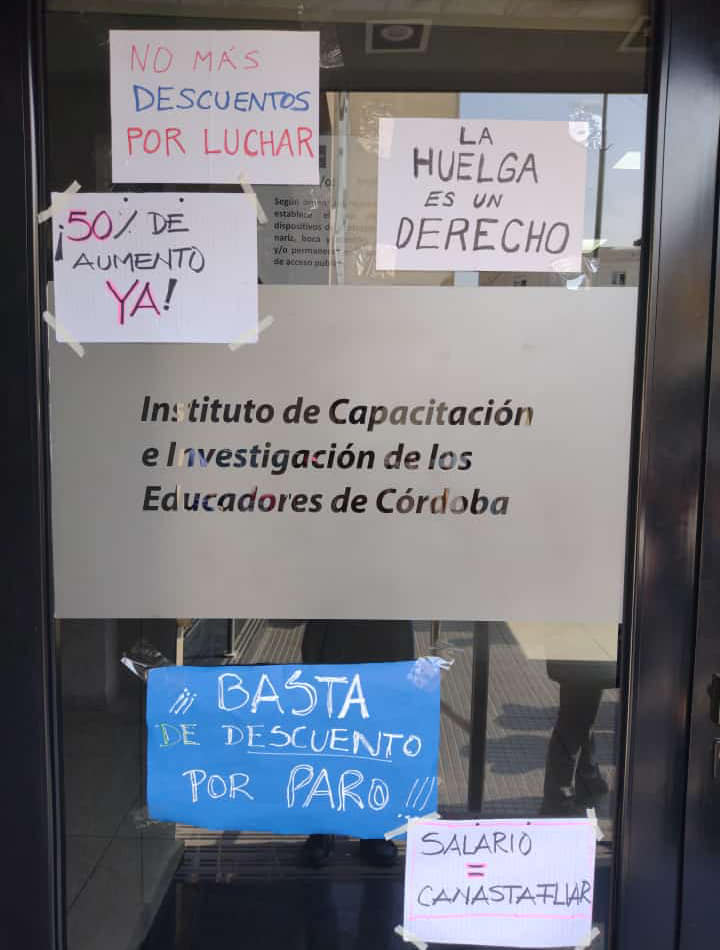 NO MÁS
DESCUENTOS
POR LUCHAR
LA
HUELGA
ES UN
DERECHO
¡50% DE
AUMENTO
YA!
Según
establece
dispositivos
nariz, boca y
y/o
de acceso
Instituto de Capacitación
e Investigación de los
Educadores de Córdoba
¡¡¡ BASTA
DE DESCUENTO
POR PARO !!!
SALARIO
=
CANASTA FLIAR